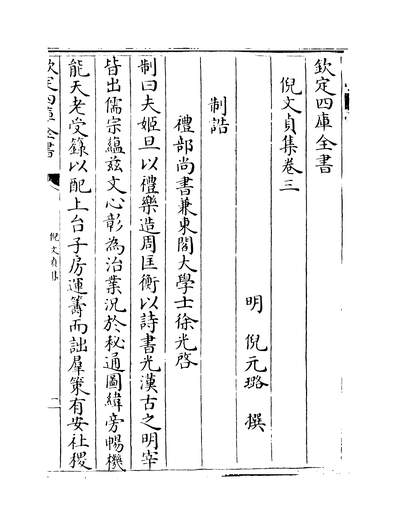 欽定四庫全書
倪文貞集卷三
明 倪元璐 撰
制誥
禮部尚書兼東閣大學士徐光啓
制曰夫姬旦以禮樂造周匡衡以詩書光漢古之明宰
皆出儒宗蘊茲文心彰為治業況於秘通圖緯旁暢機
能天老受籙以配上台子房運籌而詘羣策有安社稷
欽定四庫全書
倪文貞集